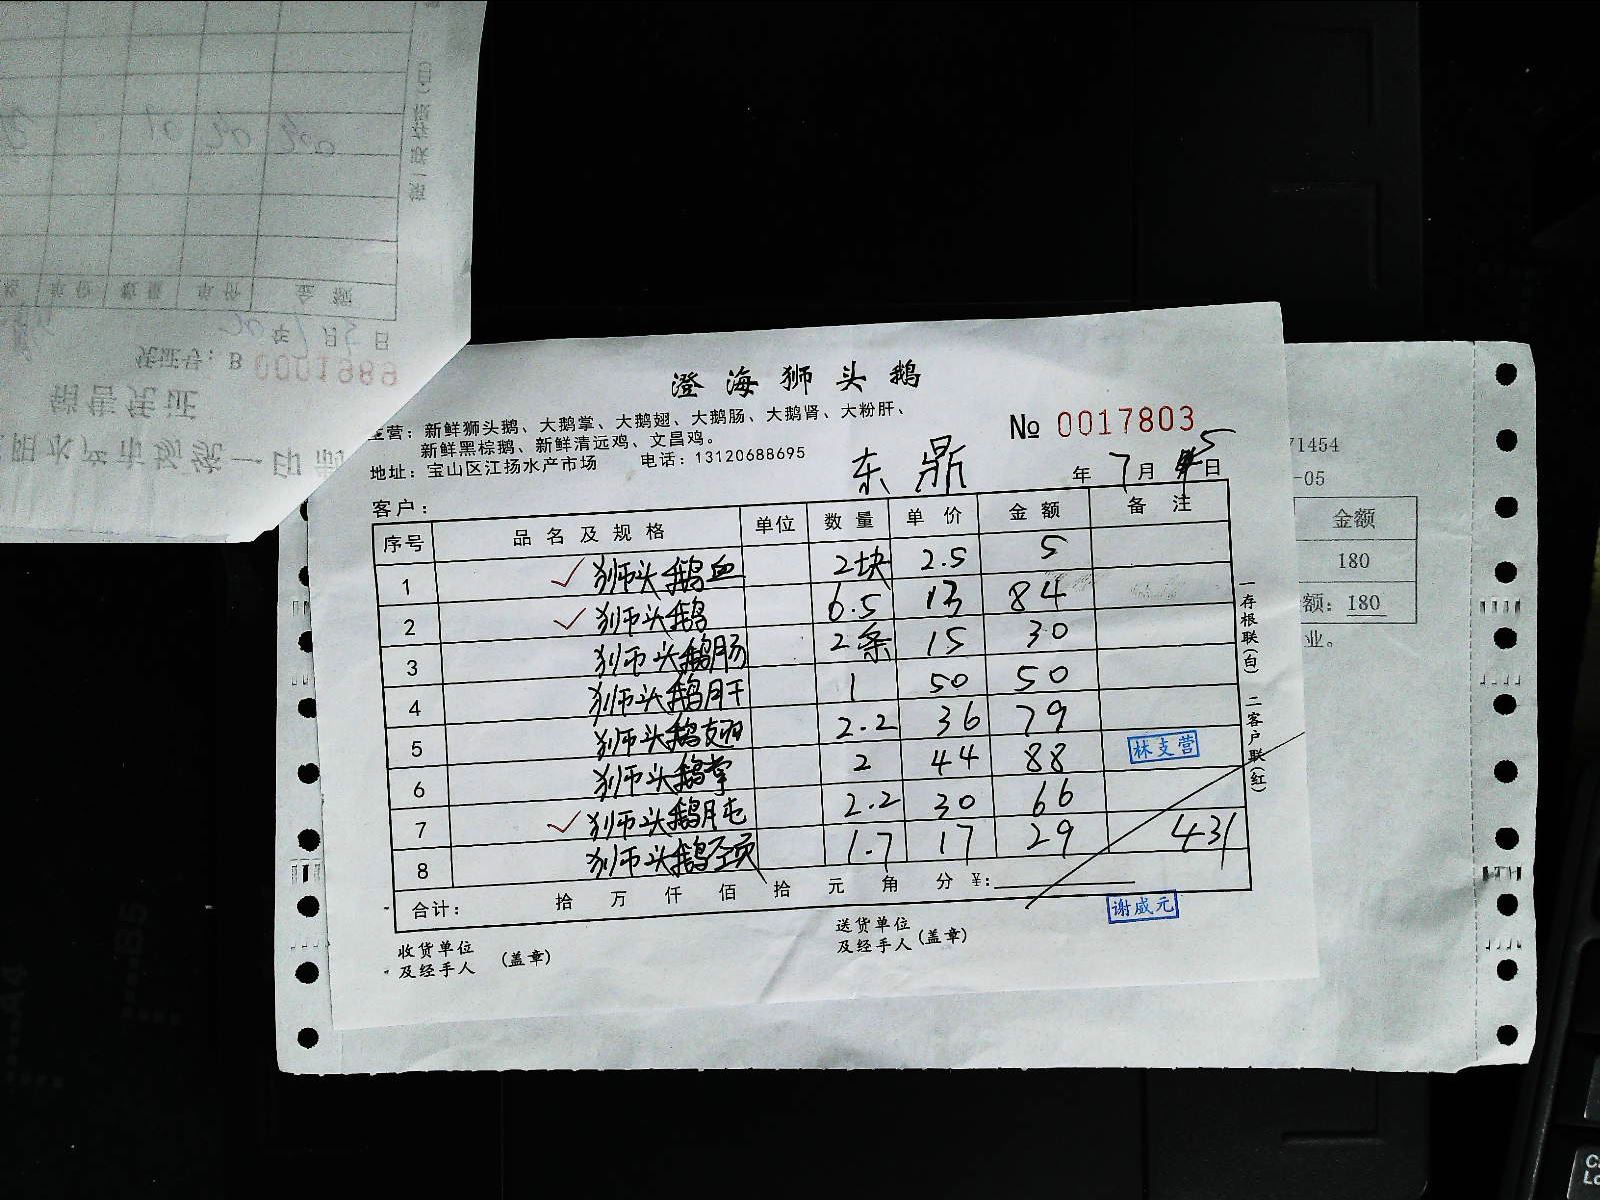 澄海狮头鹅
主营：新鲜狮头鹅、大鹅掌、大鹅翅、大鹅肠、大鹅肾、大粉肝、
新鲜黑棕鹅、新鲜清远鸡、文昌鸡。
地址：宝山区江扬水产市场 电话：13120688695
№ 0017803
客户： 东鼎 年 7月 5日
序号 品名及规格 单位 数量 单价 金额 备注
1 狮头鹅血 2块 2.5 5
2 狮头鹅 6.5 13 84
3 狮头鹅肠 2条 15 30
4 狮头鹅肝 1 50 50
5 狮头鹅翅 2.2 36 79
6 狮头鹅掌 2 44 88
7 狮头鹅肫 2.2 30 66
8 狮头鹅颈 1.7 17 29 431
合计： 拾 万 仟 佰 拾 元 角 分 ¥:
收货单位
及经手人 （盖章）
送货单位
及经手人（盖章）
林支营
谢威元
一存根联（白） 二客户联（红）
71454
-05
金额
180
额：180
业。
销售凭证
凭证号：B 0001989
年 月 日
单价 数量 单价 金额
A4
B5